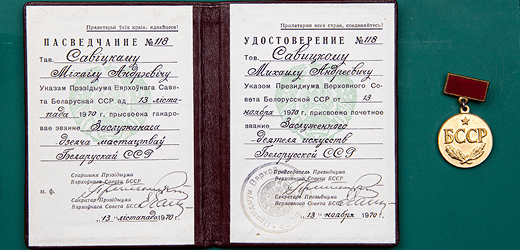 Пралетарыі ўсіх краін, яднайцеся!
ПАСВЕДЧАННЕ №118
Тав. Савіцкаму
Міхаілу Андрэевічу
Указам Прэзідыума Вярхоўнага Саве-
та Беларускай ССР ад 13 ліста-
пада 1970 г. прысвоена ганаро-
вае званне Заслужанага
дзеяча мастацтваў
Беларускай ССР
Старшыня Прэзідыума
Вярхоўнага Савета БССР
м. ф.
Сакратар Прэзідыума
Вярхоўнага Савета БССР
„13 лістапада 1970 г.
Пролетарии всех стран, соединяйтесь!
УДОСТОВЕРЕНИЕ №118
Тов. Савицкому
Михаилу Андреевичу
Указом Президиума Верховного Сове-
та Белорусской ССР от 13
ноября 1970 г. присвоено почетное
звание Заслуженного
деятеля искусств
Белорусской ССР
Председатель Президиума
Верховного Совета БССР
Секретарь Президиума
Верховного Совета БССР
„13 ноября 1970 г.
БССР